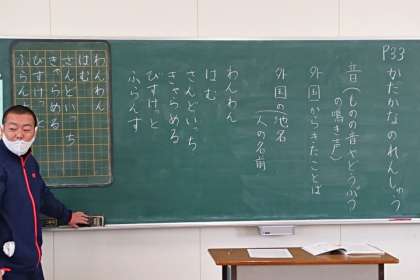 P33
かたかなのれんしゅう
音(ものの音やどうぶつ
の鳴き声)
外国からきたことば
外国の地名
(人の名前
わんわん
はむ
さんどいっち
きゃらめる
びすけっと
ふらんす
わんわん
はむ
さんどいっち
きゃらめる
びすけっと
ふらんす